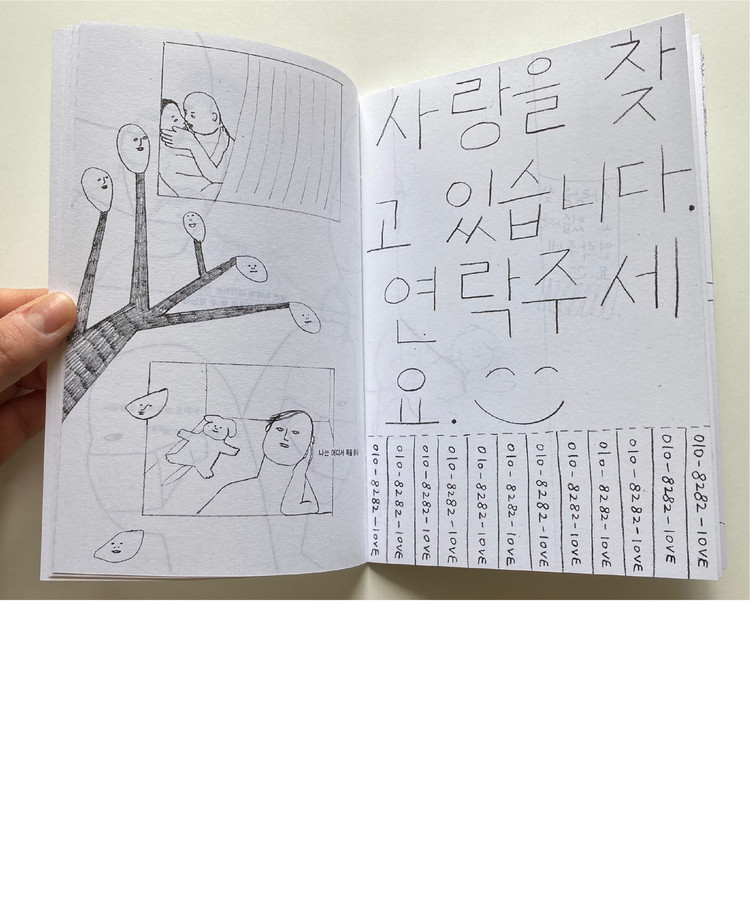 나는 어디서
사랑을 찾
고 있습니다.
연락주세
요.
010-8282-lOVE
010-8282-lOVE
010-8282-lOVE
010-8282-lOVE
010-8282-lOVE
010-8282-lOVE
010-8282-lOVE
010-8282-lOVE
010-8282-lOVE
010-8282-lOVE
010-8282-lOVE
010-8282-lOVE